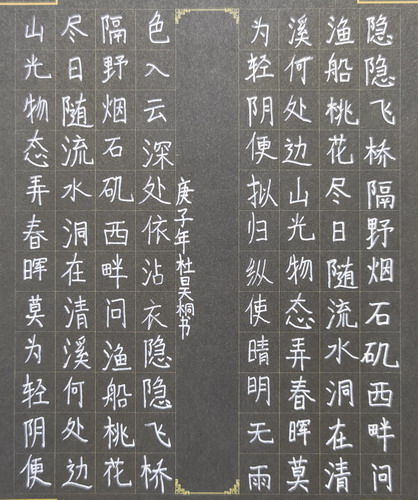 隐隐飞桥隔野烟石矶西畔问
渔船桃花尽日随流水洞在清
溪何处边山光物态弄春晖莫
为轻阴便拟归纵使晴明无雨
庚子年杜昊桐书
色入云深处依沾衣隐隐飞桥
隔野烟石矶西畔问渔船桃花
尽日随流水洞在清溪何处边
山光物态弄春晖莫为轻阴便